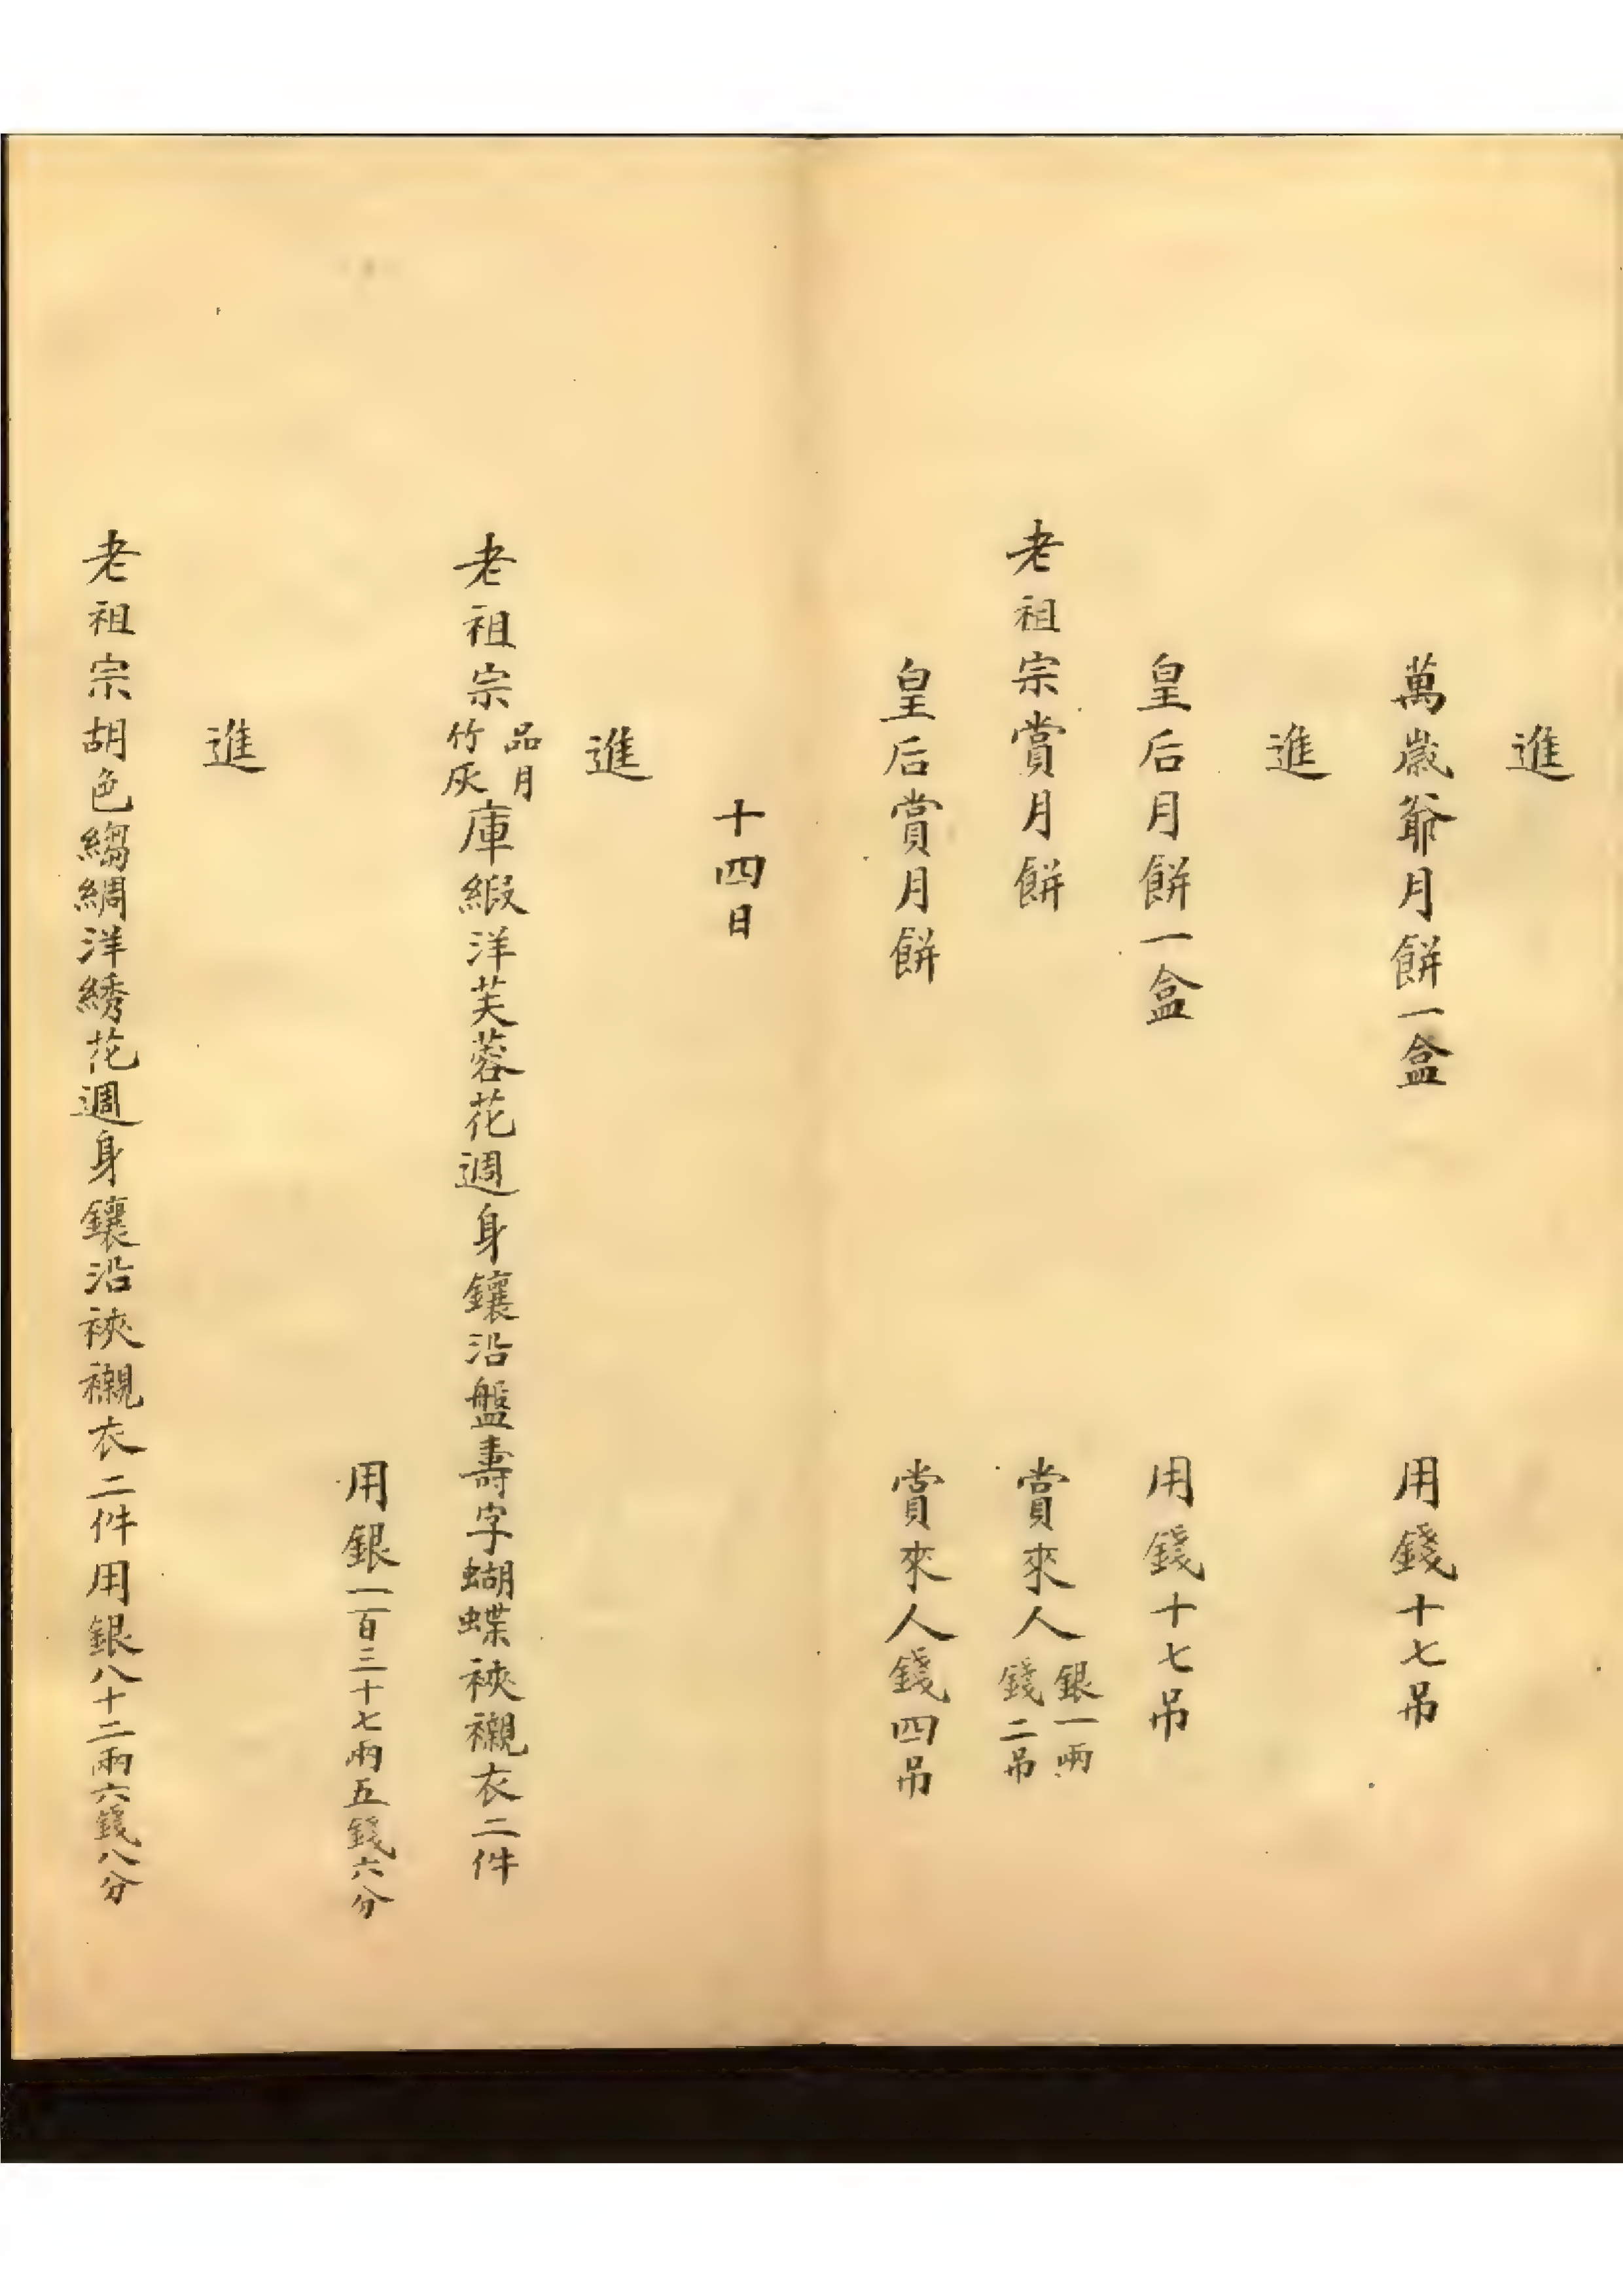 進
萬歲爺月餅一盒　用錢十七吊
進
皇后月餅一盒　用錢十七吊
老祖宗賞月餅　賞來人銀一兩錢二吊
皇后賞月餅　賞來人錢四吊
十四日
進
老祖宗品月竹灰庫緞洋芙蓉花週身鑲沿盤壽字蝴蝶裌襯衣二件
用銀一百三十七兩五錢六分
進
老祖宗胡色縐綢洋綉花週身鑲沿裌襯衣二件用銀八十二兩六錢八分